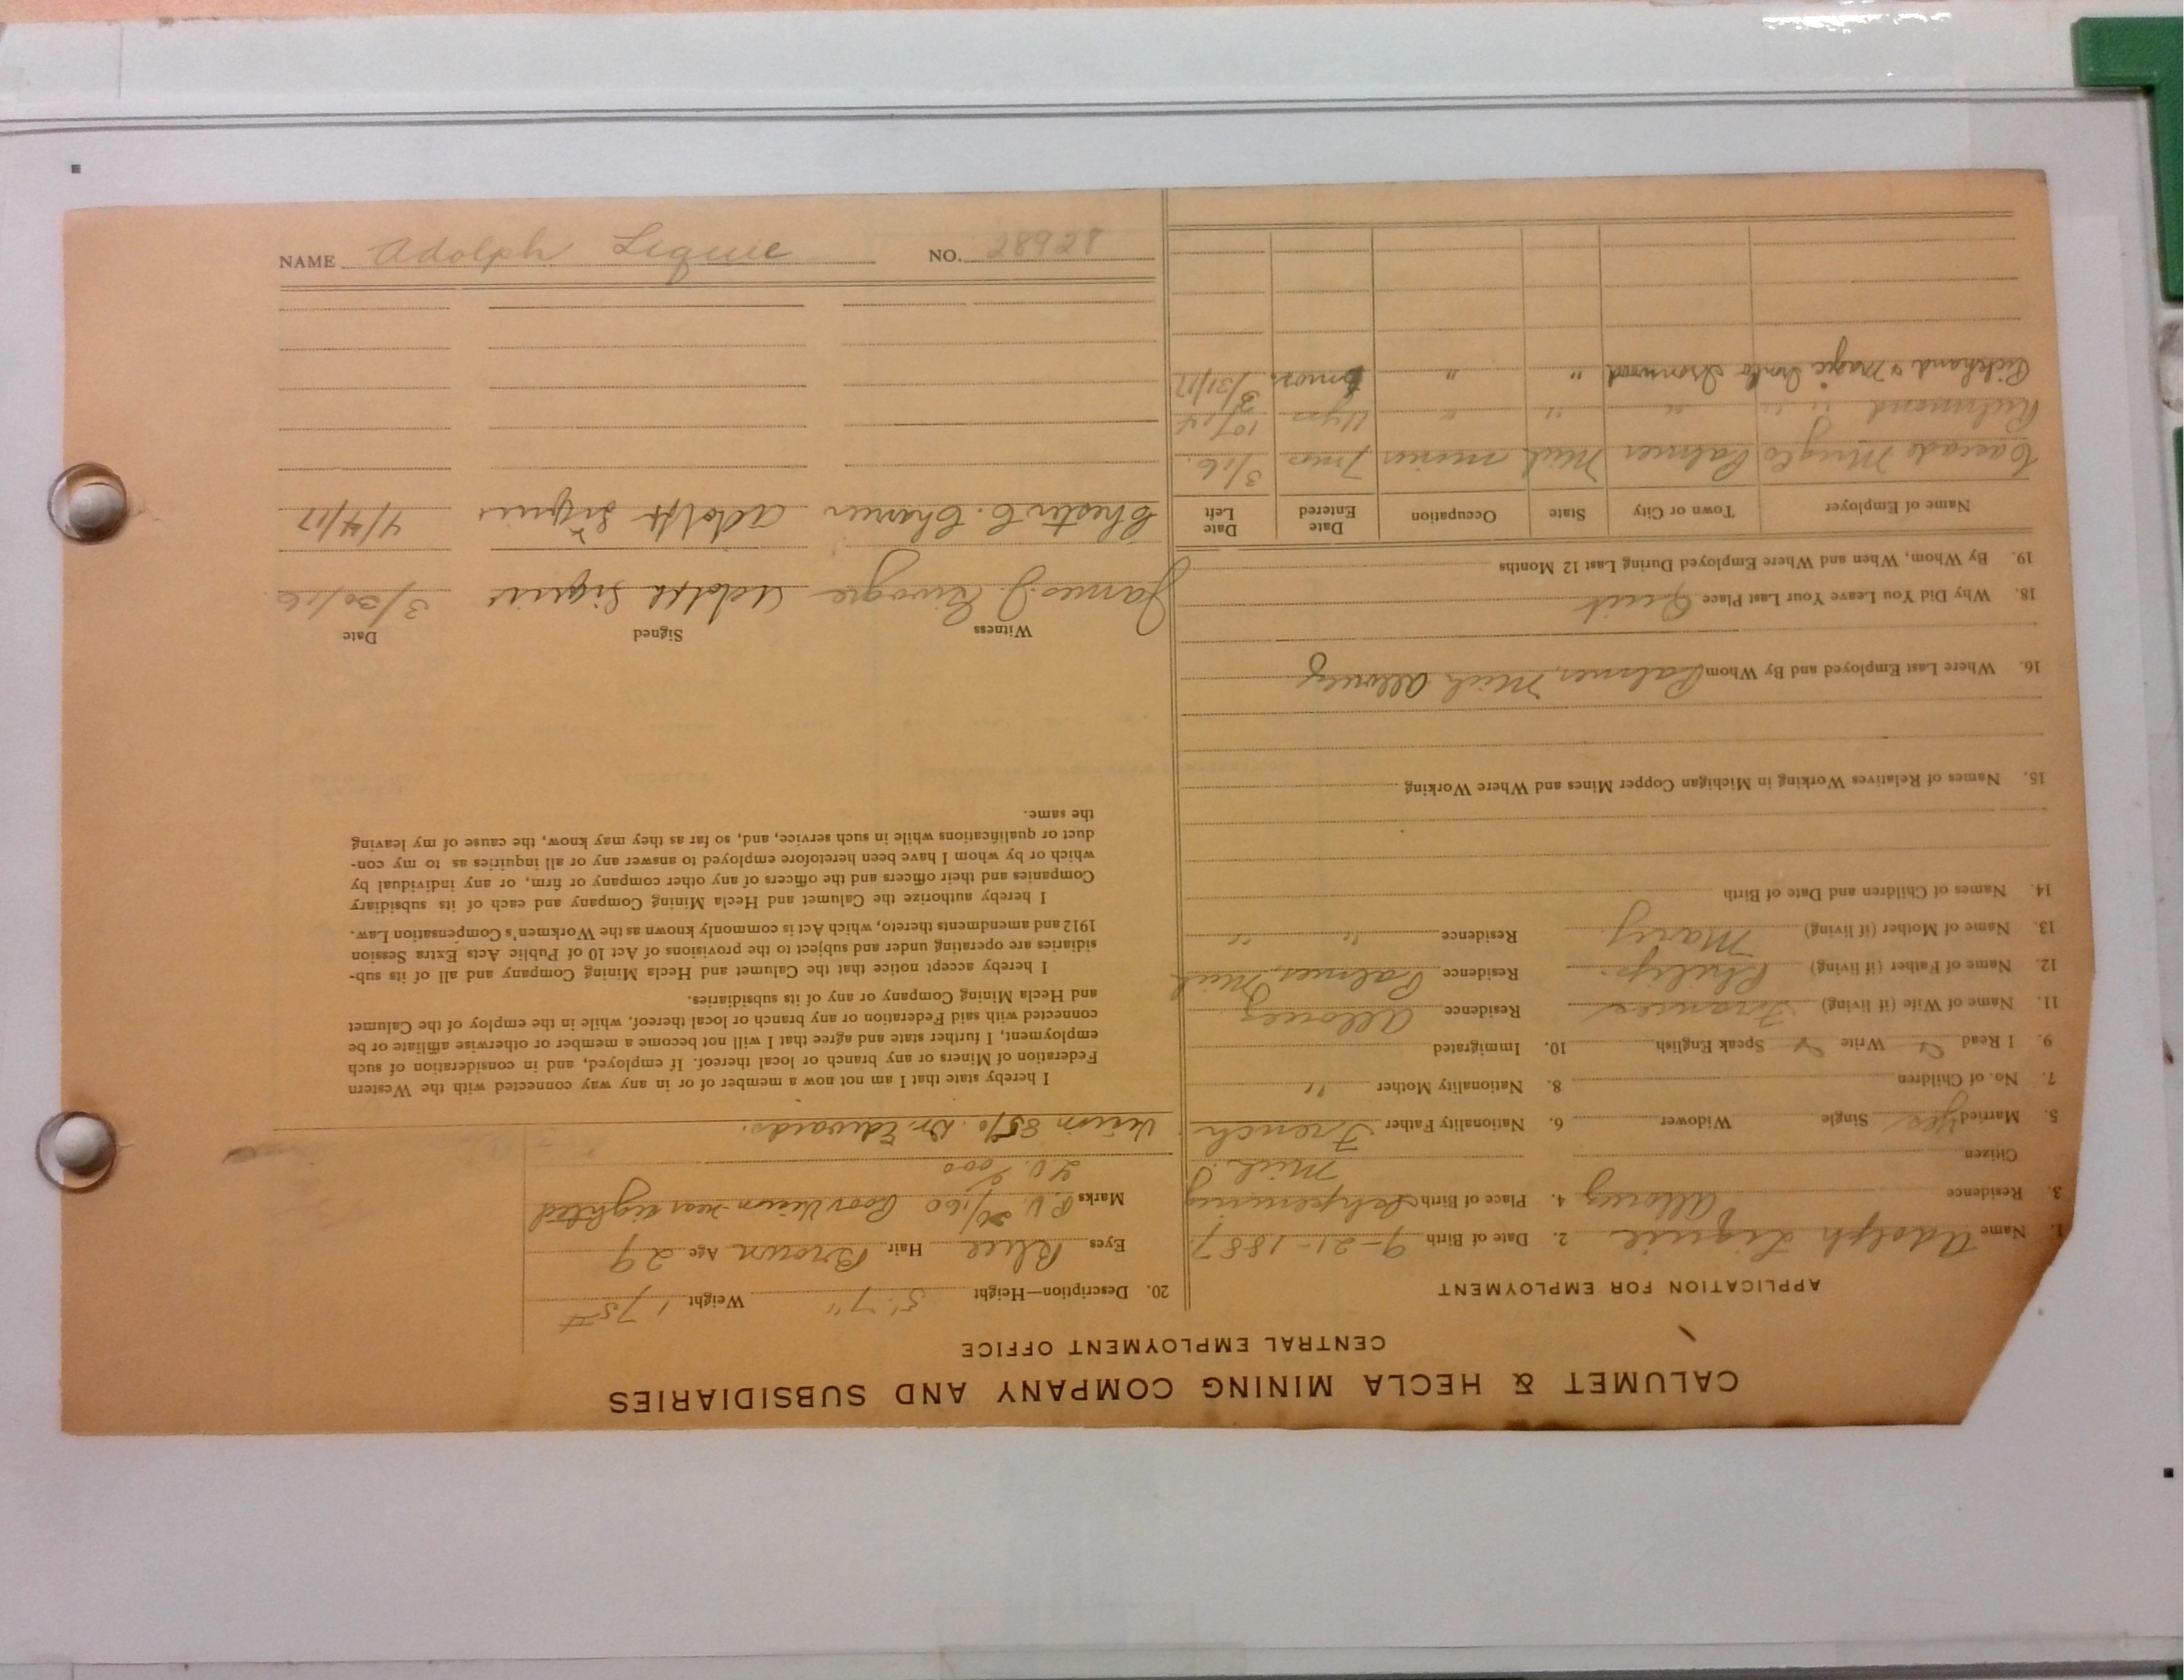 CALUMET & HECLA MINING COMPANY AND SUBSIDIARIES
CENTRAL EMPLOYMENT OFFICE
APPLICATION FOR EMPLOYMENT
1. Name Adolph Liquie 2. Date of Birth 9-21-1887
3. Residence Allouez 4. Place of Birth Ishpeming
Citizen Mich
5. Married yes Single Widower 6. Nationality Father French
7. No. of Children 8. Nationality Mother "
9. I Read Write Speak English 10. Immigrated
11. Name of Wife (if living) Frances Residence Allouez
12. Name of Father (if living) Philip Residence Palmer, Mich
13. Name of Mother (if living) Mary Residence " "
14. Names of Children and Date of Birth
15. Names of Relatives Working in Michigan Copper Mines and Where Working
16. Where Last Employed and By Whom Palmer, Mich Allouez
18. Why Did You Leave Your Last Place Quit
19. By Whom, When and Where Employed During Last 12 Months
Name of Employer Town or City State Occupation Date Entered Date Left
Cascade Mng Co Palmer Mich miner 7 mos 3/16.
Richmond " " " " " 4 yrs 10/14
Ironwood " " 6 mos. 3/31/17
20. Description—Height 5' 7" Weight 175#
Eyes Blue Hair Brown Age 29
Marks R.V. 20/160 Poor Vision near sighted
L.V.
Vision 85% Dr. Edwards.
I hereby state that I am not now a member of or in any way connected with the Western
Federation of Miners or any branch or local thereof. If employed, and in consideration of such
employment, I further state and agree that I will not become a member or otherwise affiliate or be
connected with said Federation or any branch or local thereof, while in the employ of the Calumet
and Hecla Mining Company or any of its subsidiaries.
I hereby accept notice that the Calumet and Hecla Mining Company and all of its sub-
sidiaries are operating under and subject to the provisions of Act 10 of Public Acts Extra Session
1912 and amendments thereto, which Act is commonly known as the Workmen's Compensation Law.
I hereby authorize the Calumet and Hecla Mining Company and each of its subsidiary
Companies and their officers and the officers of any other company or firm, or any individual by
which or by whom I have been heretofore employed to answer any or all inquiries as to my con-
duct or qualifications while in such service, and, so far as they may know, the cause of my leaving
the same.
Witness Signed Date
James J. Adolph Liquie 3/30/16.
Chester C. Adolph Liquie 4/4/17
NAME Adolph Liquie NO. 28928